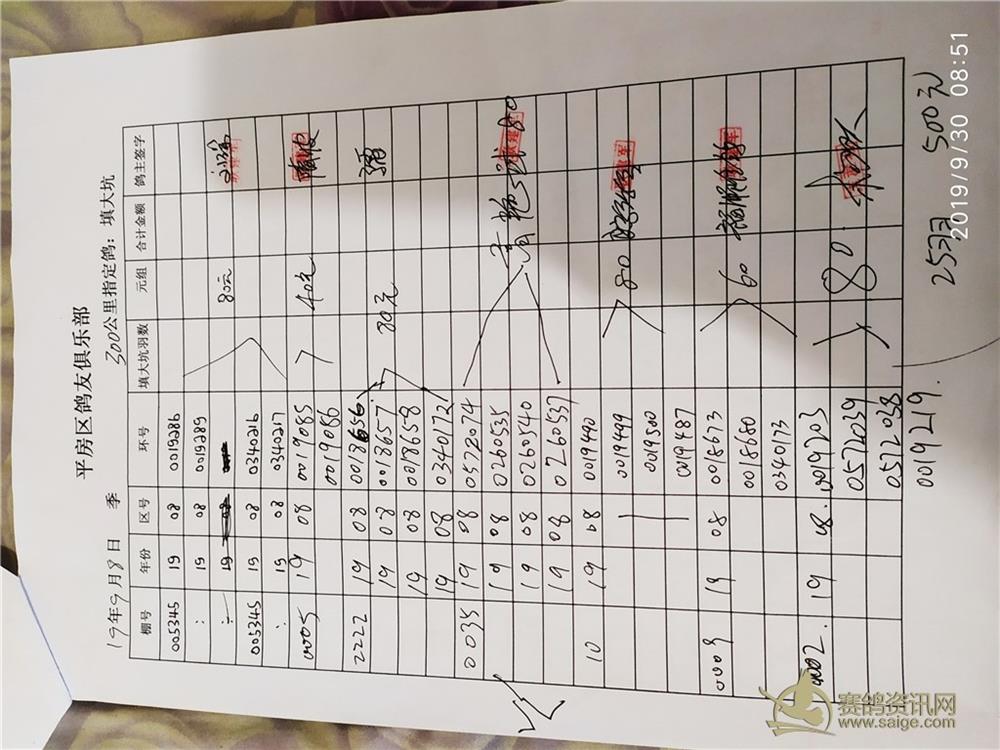 平房区鸽友俱乐部
19年9月8日 季 300公里指定鸽：填大坑
棚号 年份 区号 环号 填大坑羽数 元组 合计金额 鸽主签字
005345 19 08 0019286
: 19 08 0019289
: 19 08 80元
005345 19 08 0340216
: 19 08 0340217
0005 19 08 0019085 40元
0019086
2222 19 08 0018656
19 08 0018657 80元
19 08 0018658
19 08 0340172
0035 19 08 0572074
19 08 0260535 80
19 08 0260540
19 08 0260537
10 19 08 0019490
0019499 80
0019500
0019487
0009 19 08 0018673
0018680 60
0340173
0002. 19 08. 0019203
0572039 80.
0572038
0019219.
25羽 500元
2019/9/30 08:51
赛鸽资讯网
www.saige.com